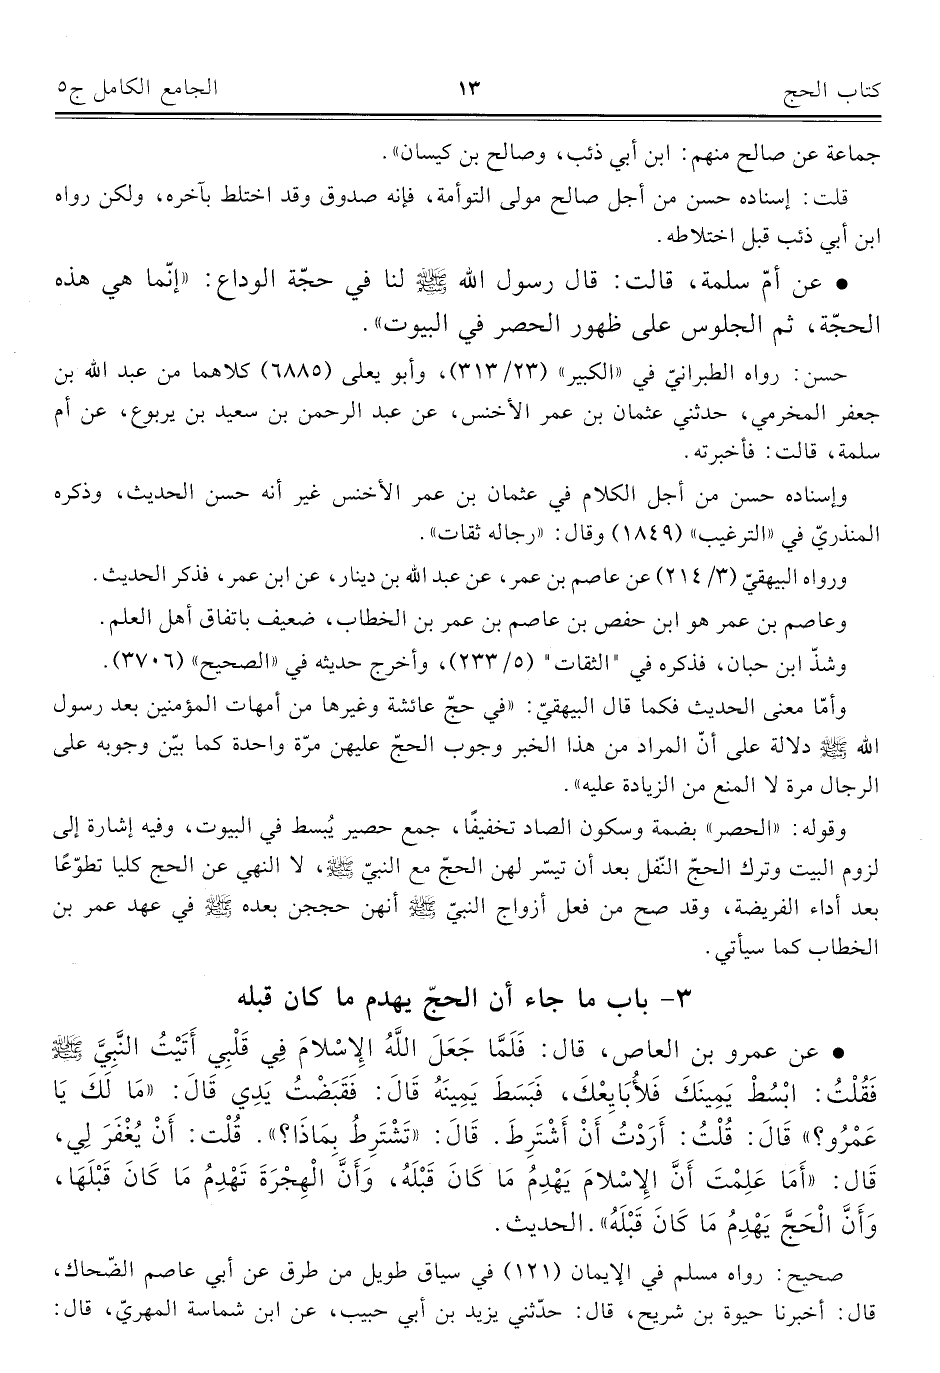 كتاب الحج ١٣ الجامع الكامل ج٥
جماعة عن صالح منهم: ابن أبي ذئب، وصالح بن كيسان».
قلت: إسناده حسن من أجل صالح مولى التوأمة، فإنه صدوق وقد اختلط بآخره، ولكن رواه
ابن أبي ذئب قبل اختلاطه.
• عن أمّ سلمة، قالت: قال رسول الله ﷺ لنا في حجّة الوداع: «إنّما هي هذه
الحجّة، ثم الجلوس على ظهور الحصر في البيوت».
حسن: رواه الطبرانيّ في «الكبير» (٢٣/ ٣١٣)، وأبو يعلى (٦٨٨٥) كلاهما من عبد الله بن
جعفر المخرمي، حدثني عثمان بن عمر الأخنس، عن عبد الرحمن بن سعيد بن يربوع، عن أم
سلمة، قالت: فأخبرته.
وإسناده حسن من أجل الكلام في عثمان بن عمر الأخنس غير أنه حسن الحديث، وذكره
المنذريّ في «الترغيب» (١٨٤٩) وقال: «رجاله ثقات».
ورواه البيهقيّ (٣/ ٢١٤) عن عاصم بن عمر، عن عبد الله بن دينار، عن ابن عمر، فذكر الحديث.
وعاصم بن عمر هو ابن حفص بن عاصم بن عمر بن الخطاب، ضعيف باتفاق أهل العلم.
وشذّ ابن حبان، فذكره في "الثقات" (٥/ ٢٣٣)، وأخرج حديثه في «الصحيح» (٣٧٠٦).
وأمّا معنى الحديث فكما قال البيهقيّ: «في حجّ عائشة وغيرها من أمهات المؤمنين بعد رسول
الله ﷺ دلالة على أنّ المراد من هذا الخبر وجوب الحجّ عليهن مرّة واحدة كما بيّن وجوبه على
الرجال مرة لا المنع من الزيادة عليه».
وقوله: «الحصر» بضمة وسكون الصاد تخفيفًا، جمع حصير يُبسط في البيوت، وفيه إشارة إلى
لزوم البيت وترك الحجّ النّفل بعد أن تيسّر لهن الحجّ مع النبيّ ﷺ، لا النهي عن الحج كليا تطوّعًا
بعد أداء الفريضة، وقد صح من فعل أزواج النبيّ ﷺ أنهن حججن بعده ﷺ في عهد عمر بن
الخطاب كما سيأتي.
٣- باب ما جاء أن الحجّ يهدم ما كان قبله
• عن عمرو بن العاص، قال: فَلَمَّا جَعَلَ اللَّهُ الإِسْلامَ فِي قَلْبِي أَتَيْتُ النَّبِيَّ ﷺ
فَقُلْتُ: ابْسُطْ يَمِينَكَ فَلأُبَايِعْكَ، فَبَسَطَ يَمِينَهُ قَالَ: فَقَبَضْتُ يَدِي قَالَ: «مَا لَكَ يَا
عَمْرُو؟» قَالَ: قُلْتُ: أَرَدْتُ أَنْ أَشْتَرِطَ. قَالَ: «تَشْتَرِطُ بِمَاذَا؟». قُلْت: أَنْ يُغْفَرَ لِي،
قَالَ: «أَمَا عَلِمْتَ أَنَّ الإِسْلامَ يَهْدِمُ مَا كَانَ قَبْلَهُ، وَأَنَّ الْهِجْرَةَ تَهْدِمُ مَا كَانَ قَبْلَهَا،
وَأَنَّ الْحَجَّ يَهْدِمُ مَا كَانَ قَبْلَهُ». الحديث.
صحيح: رواه مسلم في الإيمان (١٢١) في سياق طويل من طرق عن أبي عاصم الضّحاك،
قال: أخبرنا حيوة بن شريح، قال: حدّثني يزيد بن أبي حبيب، عن ابن شماسة المهريّ، قال: